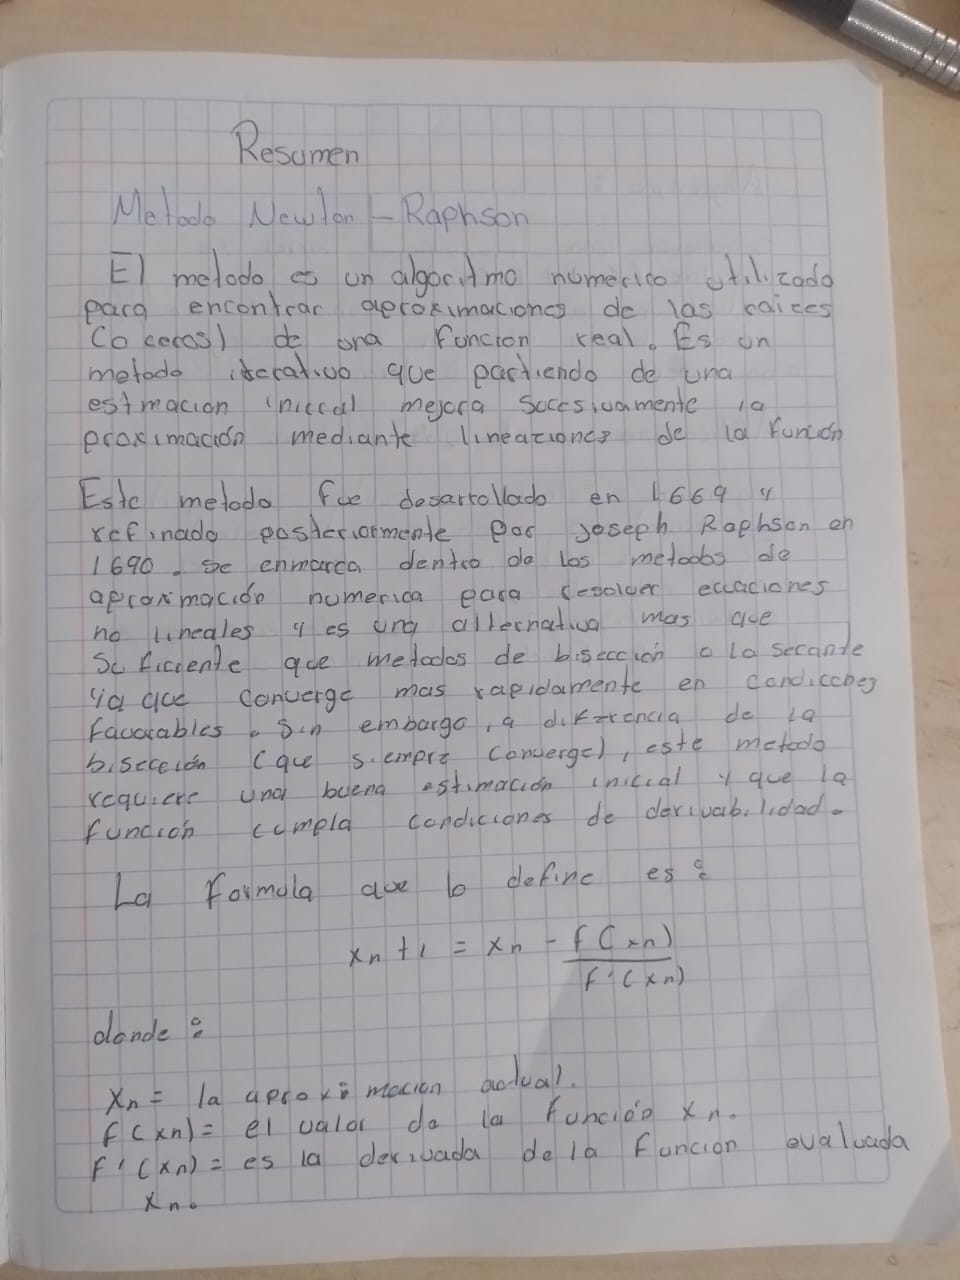 Resumen
Metodo Newton - Raphson
El metodo es un algoritmo numerico utilizado
para encontrar aproximaciones de las raices
(o ceros) de una funcion real. Es un
metodo iterativo que partiendo de una
estmacion inicial mejora sucesivamente la
proximación mediante lineaciones de la función
Este metodo fue desarrollado en 1669 y
refinado posteriormente por Joseph Raphson en
1690. se enmarca dentro de los metodos de
aproximación numerica para resolver ecuaciones
no lineales y es una alternativa mas que
suficiente que metodos de bisección o la secante
ya que converge mas rapidamente en condiciones
favorables. Sin embargo, a diferencia de la
bisección (que siempre converge), este metodo
requiere una buena estimación inicial y que la
función cumpla condiciones de derivabilidad.
La formula que lo define es:
xn+1 = xn - f(xn) / f'(xn)
donde:
xn = la aproximacion actual.
f(xn) = el valor de la función xn.
f'(xn) = es la derivada de la funcion evaluada
xn.